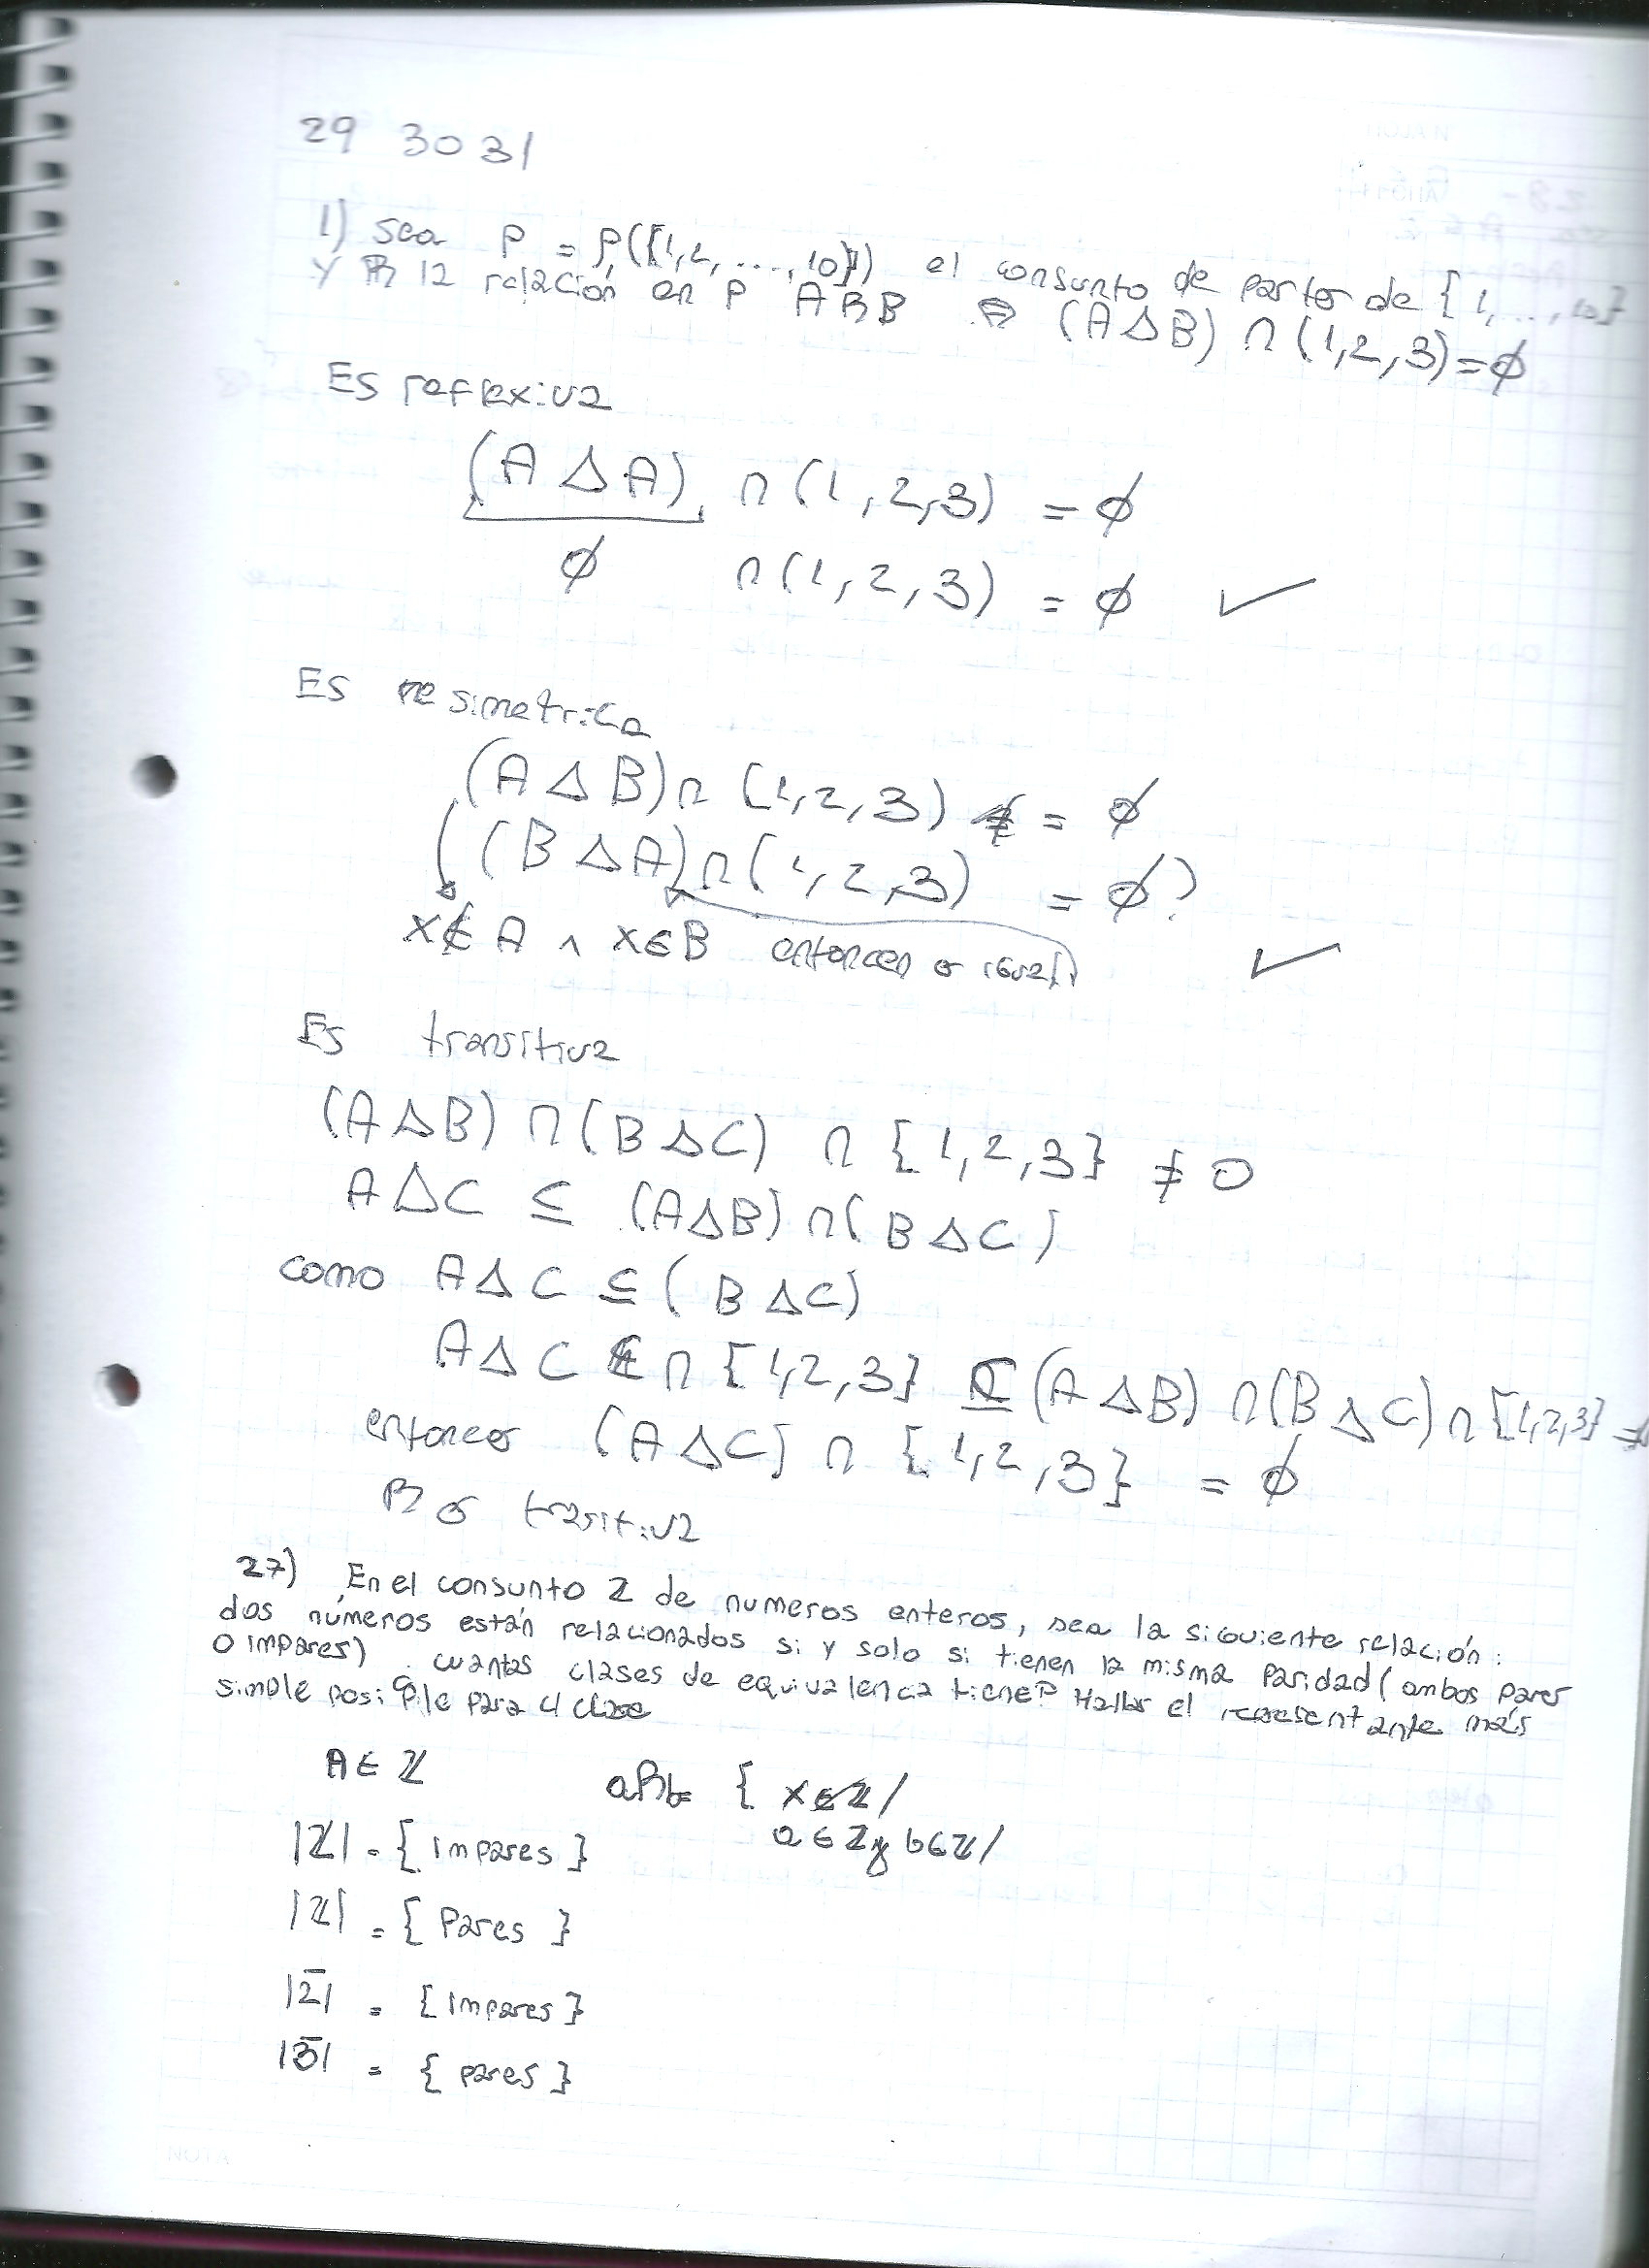 29 30 31
1) sea P = P({1,2,...,10}) el consunto de partes de {1,...,10}
y R la relación en P ARB ⇔ (A Δ B) ∩ (1,2,3) = ∅
Es reflexiva
(A Δ A) ∩ (1,2,3) = ∅
∅ ∩ (1,2,3) = ∅ ✓
Es simetrica
(A Δ B) ∩ (1,2,3) = ∅
(B Δ A) ∩ (1,2,3) = ∅?
x ∉ A ∧ x ∈ B entonces es igual ✓
Es transitiva
(A Δ B) ∩ (B Δ C) ∩ {1,2,3} ≠ 0
A Δ C ⊆ (A Δ B) ∩ (B Δ C)
como A Δ C ⊆ (B Δ C)
A Δ C ∩ {1,2,3} ⊆ (A Δ B) ∩ (B Δ C) ∩ {1,2,3} =
entonces (A Δ C) ∩ {1,2,3} = ∅
R es trasitiva
27) En el consunto Z de numeros enteros, sea la siguiente relación:
dos números están relacionados si y solo si tienen la misma paridad (ambos pares
o impares). cuantas clases de equivalencia tiene? Hallar el representante más
simple posible para c/ clase
A ∈ Z aRb = { x ∈ Z /
a ∈ Z y b ∈ Z /
|Z| = { Impares }
|Z| = { Pares }
|2̄| = { Impares }
|3̄| = { pares }